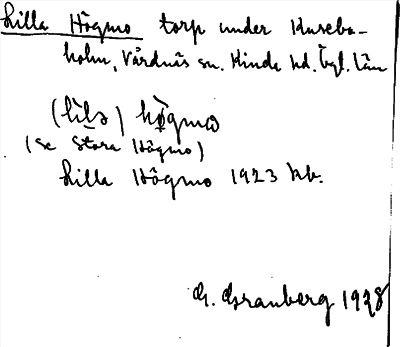 Lilla Högmo torp under Kusebo-
holm, Vårdnäs sn. Kinda hd. Ögl. län
(lìlə) hø̀gmω
(se Stora Högmo)
Lilla Högmo 1923 kb.
G. Granberg 1928